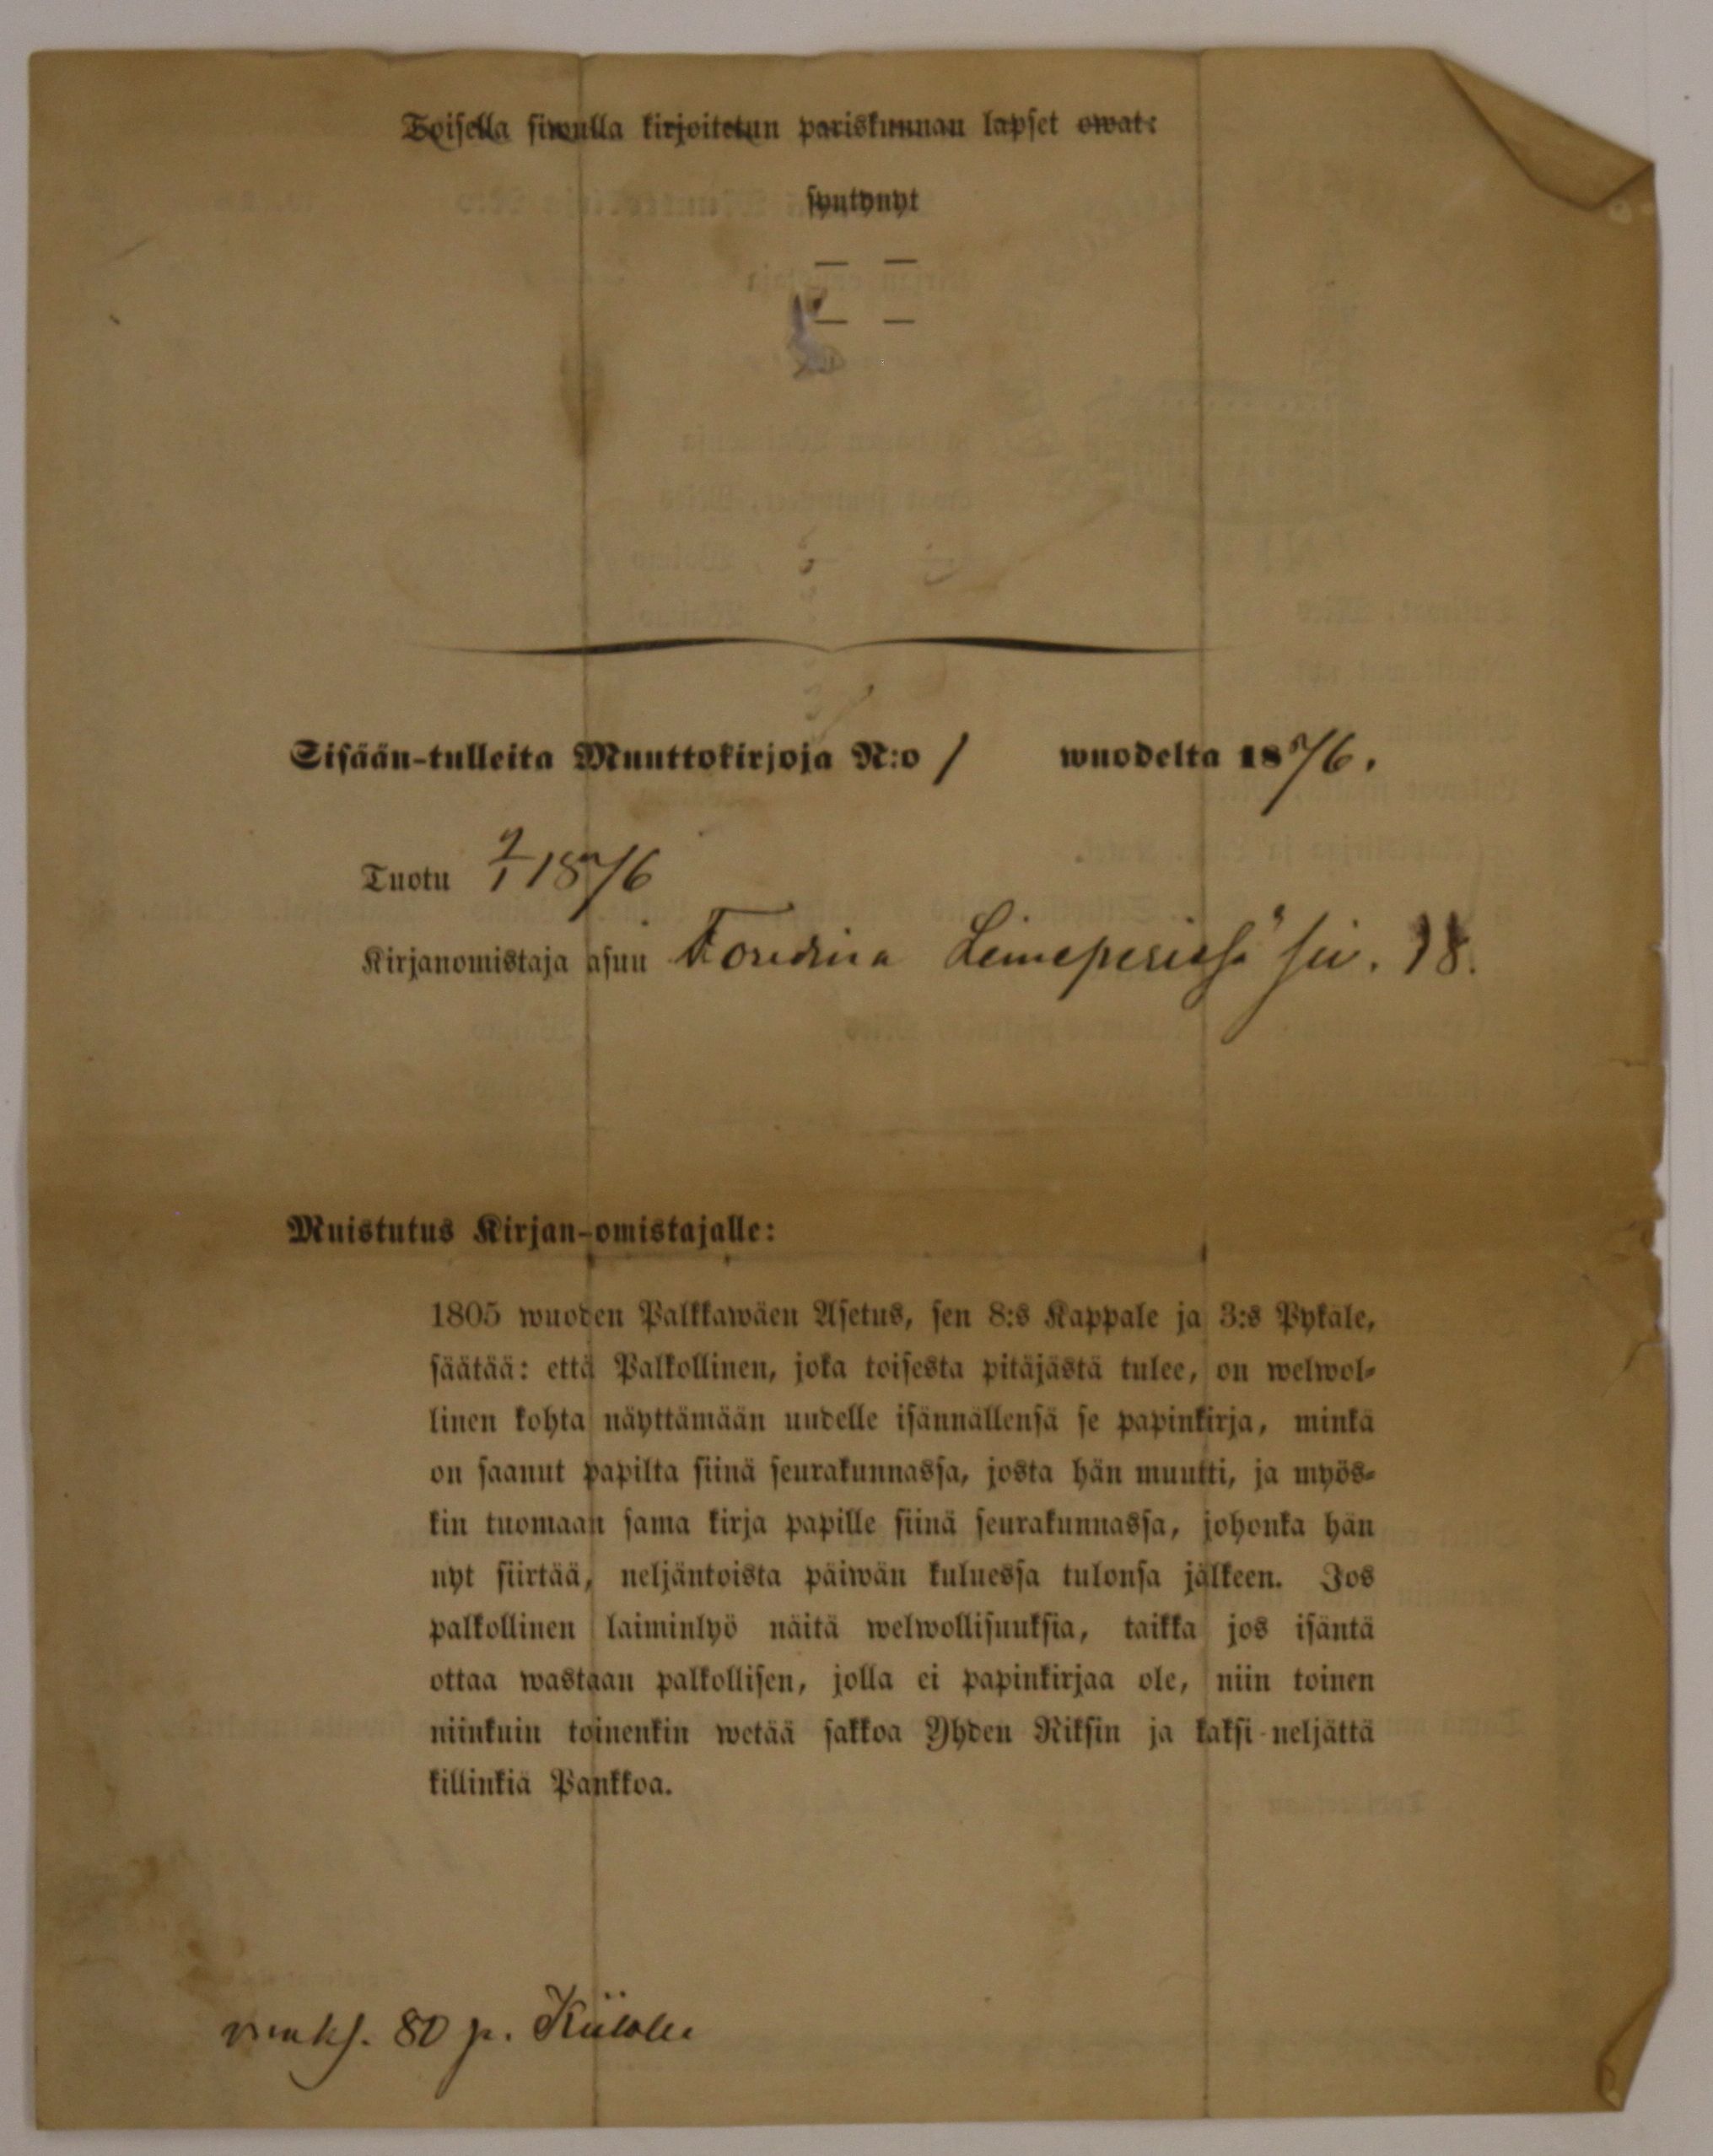 Toisella siwulla kirjoitetun pariskunnan lapset owat:
syntynyt
— —
— —
Sisään-tulleita Muuttokirjoja N:o 1 wuodelta 1876.
Tuotu 2/1 1876
Kirjanomistaja asuu siv. 18.
Muistutus Kirjan-omistajalle:
1805 wuoden Palkkawäen Asetus, sen 8:s Kappale ja 3:s Pykäle,
säätää: että Palkollinen, joka toisesta pitäjästä tulee, on welwol-
linen kohta näyttämään uudelle isännällensä se papinkirja, minkä
on saanut papilta siinä seurakunnassa, josta hän muutti, ja myös-
kin tuomaan sama kirja papille siinä seurakunnassa, johonka hän
nyt siirtää, neljäntoista päiwän kuluessa tulonsa jälkeen. Jos
palkollinen laiminlyö näitä welwollisuuksia, taikka jos isäntä
ottaa wastaan palkollisen, jolla ei papinkirjaa ole, niin toinen
niinkuin toinenkin wetää sakkoa Yhden Riksin ja kaksi neljättä
killinkiä Pankkoa.
80 p.